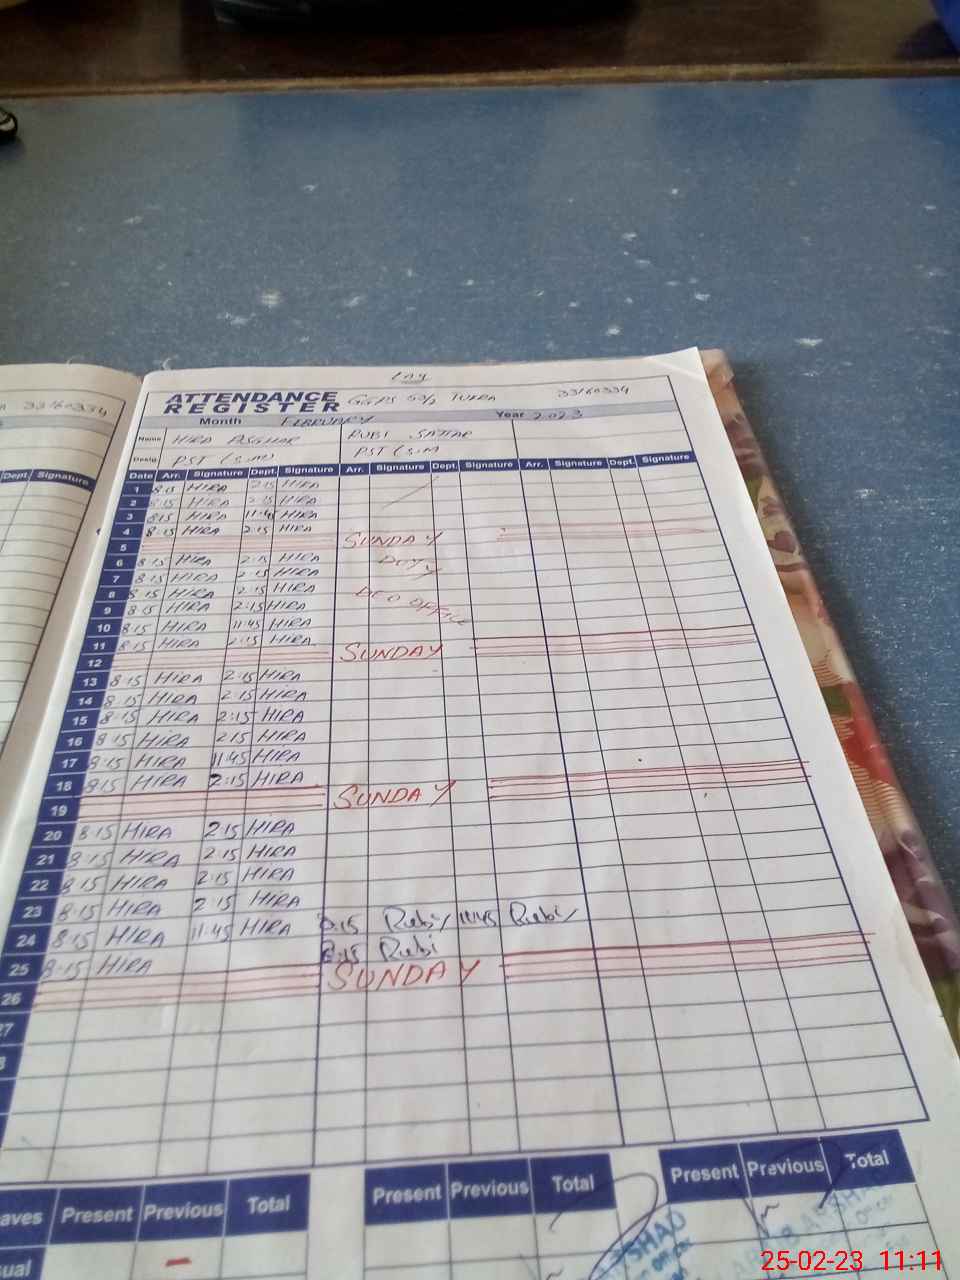 33/60334
33/60334
ATTENDANCE
REGISTER
Month FEBRUARY Year 2023
Name HIRA ASGHAR RUBI SATTAR
Desig. PST (S.M) PST (S.M
Dept. Signature
Date Arr. Signature Dept. Signature Arr. Signature Dept. Signature Arr. Signature Dept. Signature
1 8:15 HIRA 2:15 HIRA
2 8:15 HIRA 2:15 HIRA
3 8:15 HIRA 11:45 HIRA
4 8:15 HIRA 2:15 HIRA
5 SUNDAY
6 8:15 HIRA 2:15 HIRA DUTY
7 8:15 HIRA 2:15 HIRA
8 8:15 HIRA 2:15 HIRA DEO OFFICE
9 8:15 HIRA 2:15 HIRA
10 8:15 HIRA 11:45 HIRA
11 8:15 HIRA 2:15 HIRA
12 SUNDAY
13 8:15 HIRA 2:15 HIRA
14 8:15 HIRA 2:15 HIRA
15 8:15 HIRA 2:15 HIRA
16 8:15 HIRA 2:15 HIRA
17 8:15 HIRA 11:45 HIRA
18 8:15 HIRA 2:15 HIRA
19 SUNDAY
20 8:15 HIRA 2:15 HIRA
21 8:15 HIRA 2:15 HIRA
22 8:15 HIRA 2:15 HIRA
23 8:15 HIRA 2:15 HIRA
24 8:15 HIRA 11:45 HIRA 8:15 Rubi 11:45 Rubi
25 8:15 HIRA 8:15 Rubi
26 SUNDAY
27
Present Previous Total Present Previous Total Present Previous Total
25-02-23 11:11